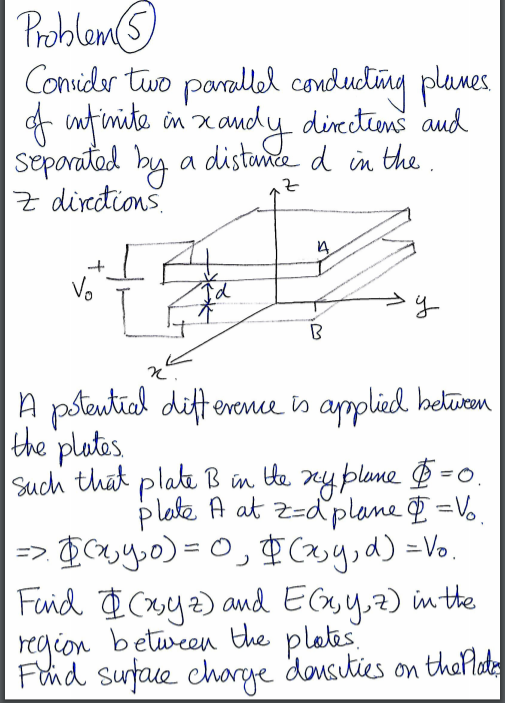 Problem (5)
Consider two parallel conducting planes
of infinite in x and y directions and
separated by a distance d in the.
z directions.
z
A
+
V₀
d
y
B
x
A potential difference is applied between
the plates.
such that plate B in the xy plane Φ = 0.
plate A at z=d plane Φ = V₀.
=> Φ(x,y,0) = 0, Φ(x,y,d) = V₀.
Find Φ(x,y z) and E(x,y,z) in the
region between the plates.
Find surface charge densities on the Plates